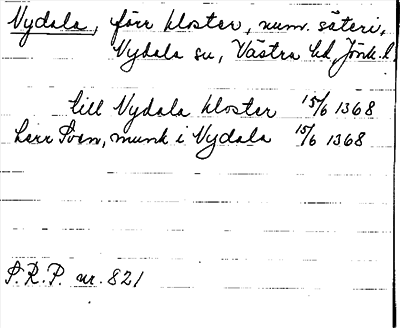 Nydala, förr kloster, num. säteri,
Nydala sn, Västra hd, Jönk. l.
till Nydala kloster 15/6 1368
herr Sven, munk i Nydala 15/6 1368
S.R.P. nr. 821